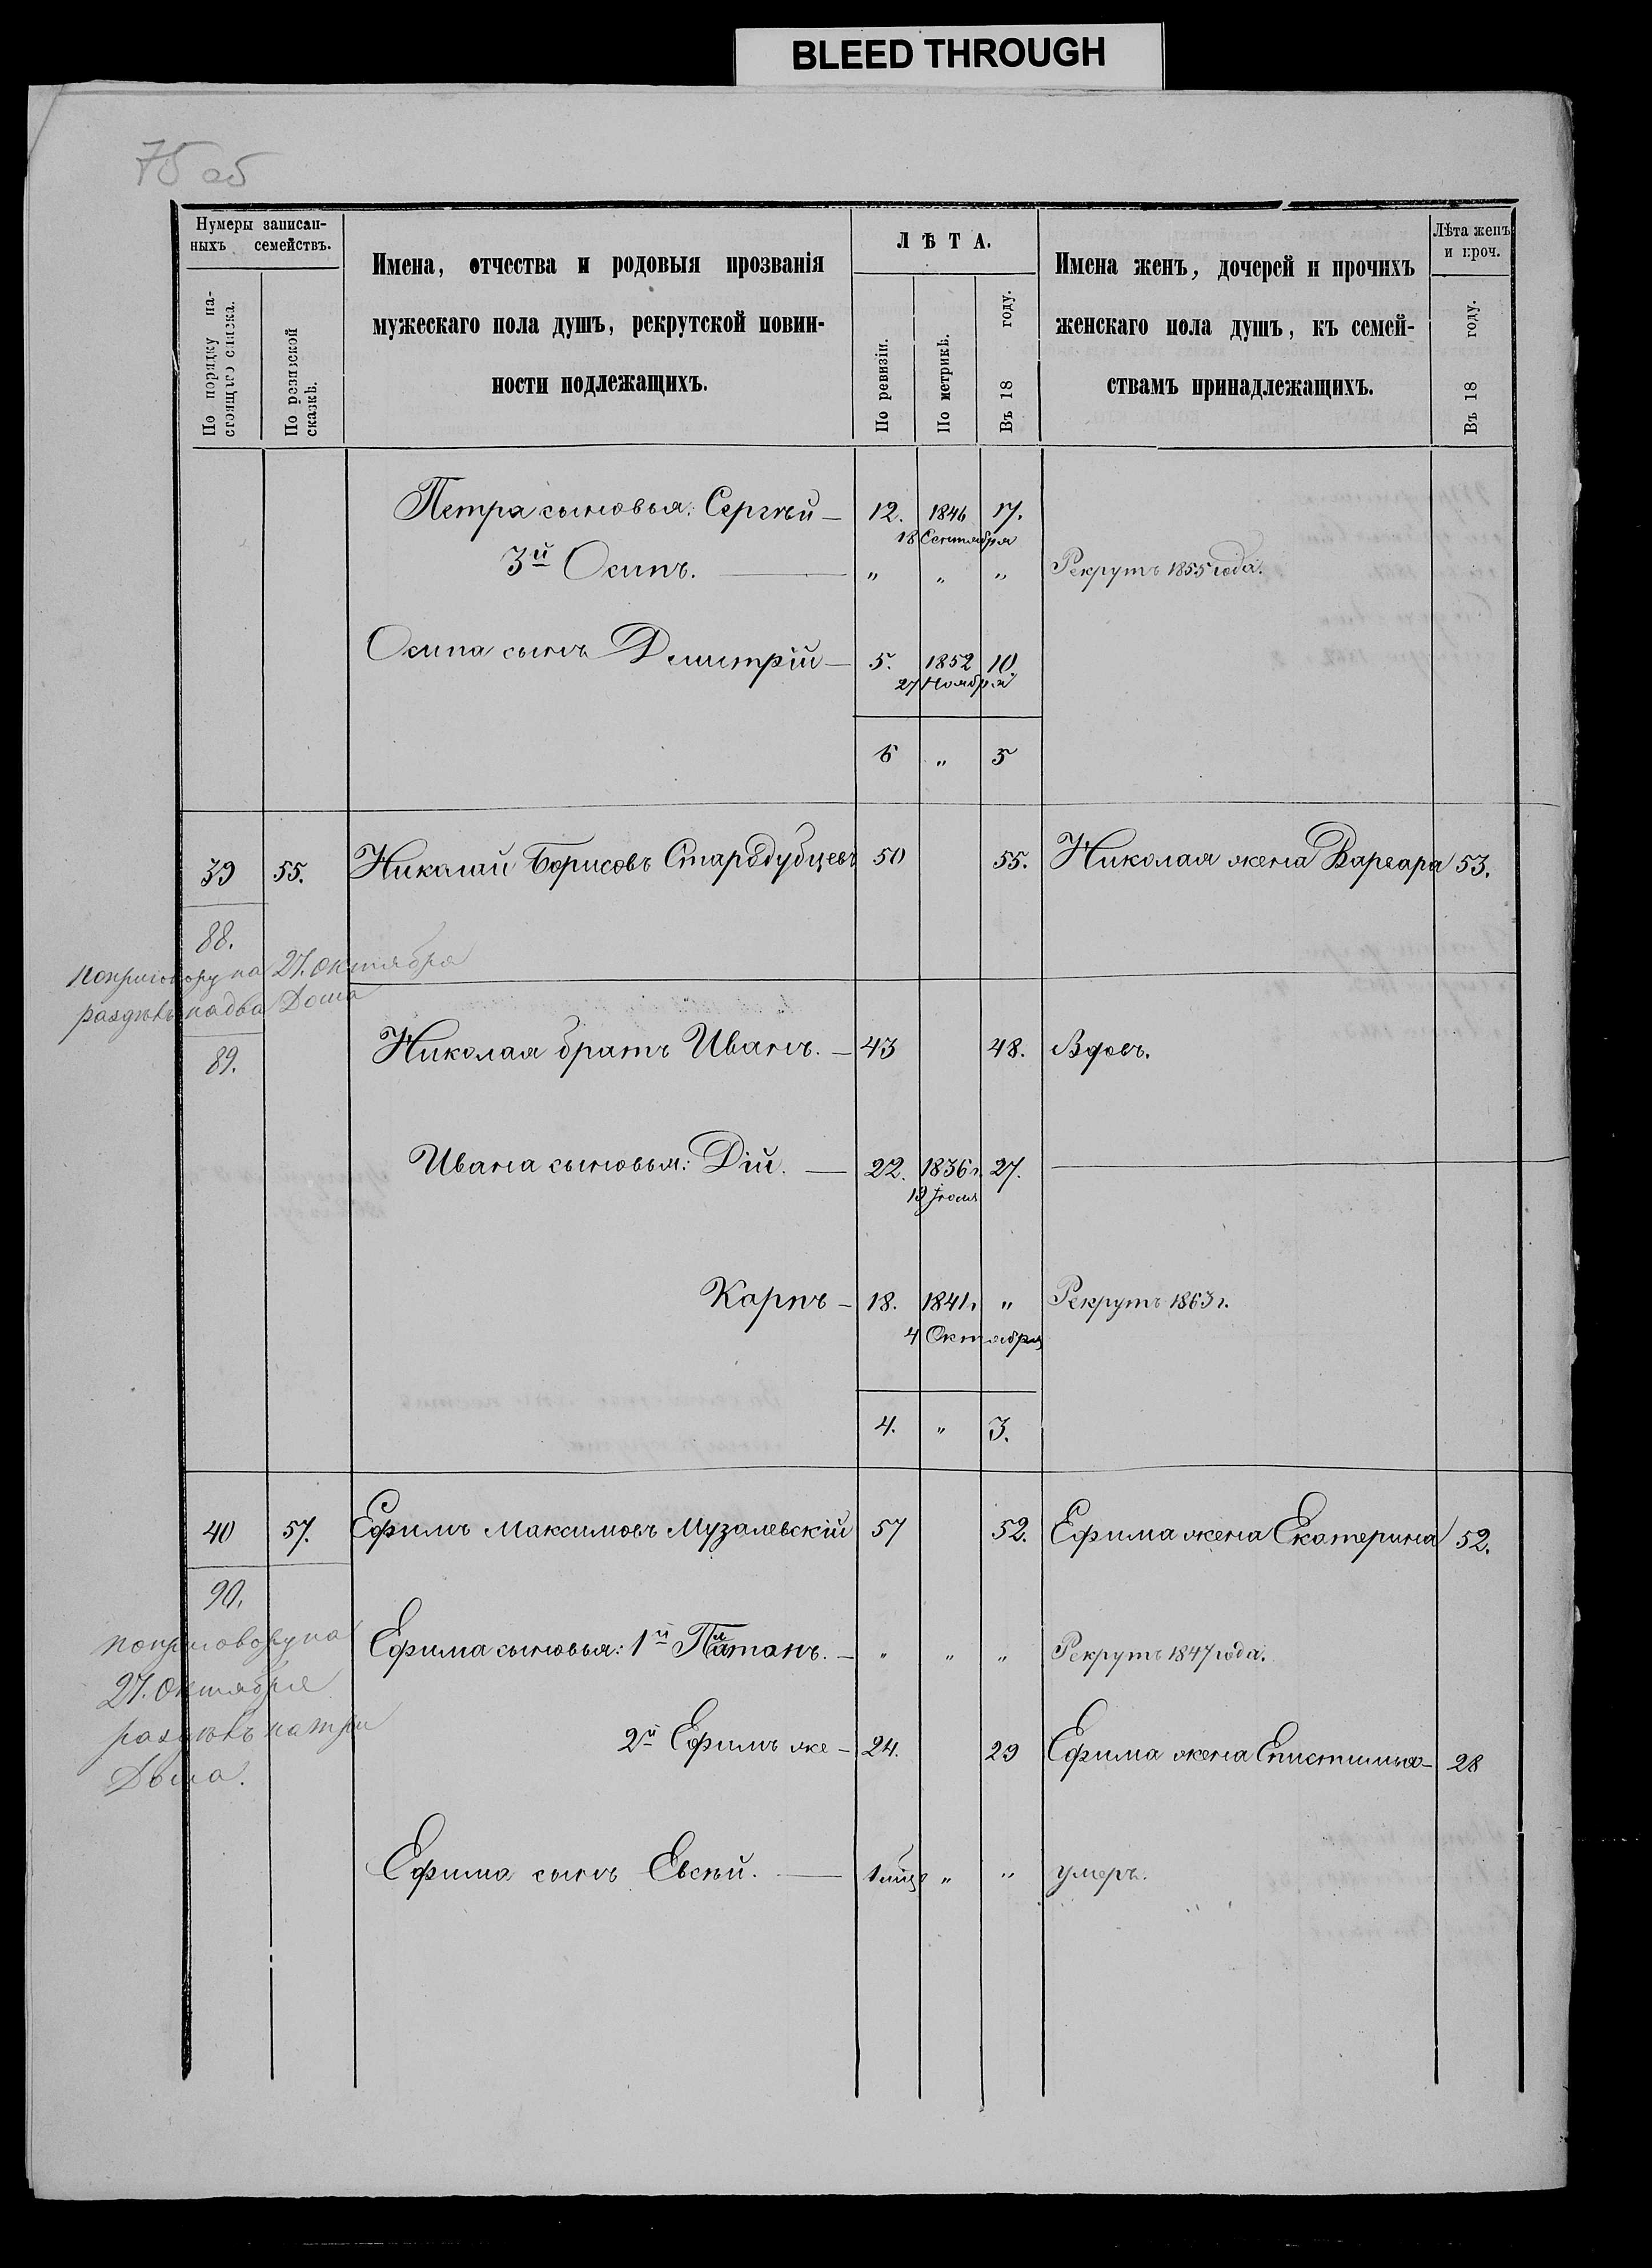 BLEED THROUGH
75 об
Нумеры записан-
ныхъ семействъ.
По порядку на-
стоящаго списка.
По ревизской
сказкѣ.
Имена, отчества и родовыя прозванія
мужескаго пола душъ, рекрутской повин-
ности подлежащихъ.
ЛѢТА.
По ревизіи.
По метрикѣ.
Въ 18 году.
Имена женъ, дочерей и прочихъ
женскаго пола душъ, къ семей-
ствамъ принадлежащихъ.
Лѣта женъ
и проч.
Въ 18 году.
Петра сыновья: Сергѣй — 12. 1846 17.
18 Сентября
3й Осипъ. — " " " Рекрутъ 1855 года.
Осипа сынъ Дмитрій — 5. 1852 10.
27 Ноября
6 " 5
39 55. Николай Борисовъ Стародубцевъ 50 55. Николая жена Варвара 53.
88.
поприговору на 27. октября
раздѣлъ на два Дома
89.
Николая братъ Иванъ. — 43 48. Вдовъ.
Ивана сыновья: Дій. — 22. 1836 г. 27. —
Карпъ — 18. 1841. " Рекрутъ 1863 г.
4 Октября
4. " 3.
40 57. Ефимъ Максимовъ Музалевскій 57 52. Ефима жена Екатерина 52.
90.
поприговору на
27. Октября
раздѣлъ на три
Дома.
Ефима сыновья: 1й — " " " Рекрутъ 1847 года.
2й Ефимъ же — 24. 29 Ефима жена Епистимья — 28
Ефима сынъ Евсѣй. — " " умеръ.